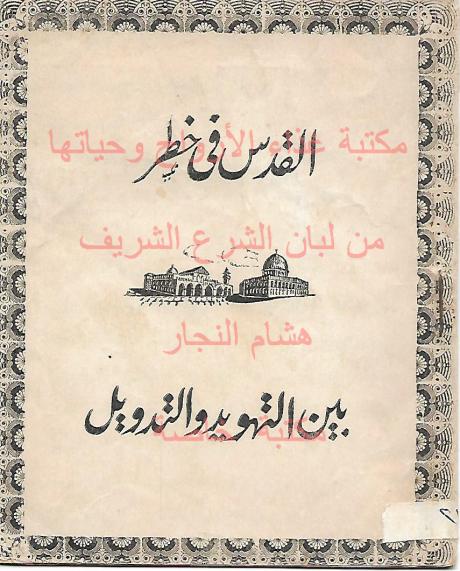 القدس في خطر
مكتبة غذاء الأرواح وحياتها
من لبان الشرع الشريف
هشام النجار
بين التهويد والتدويل
مكتبة خاصة